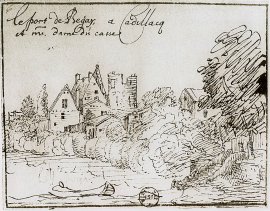 le port de Begay, a Cadillacq
et mr. dame du casse